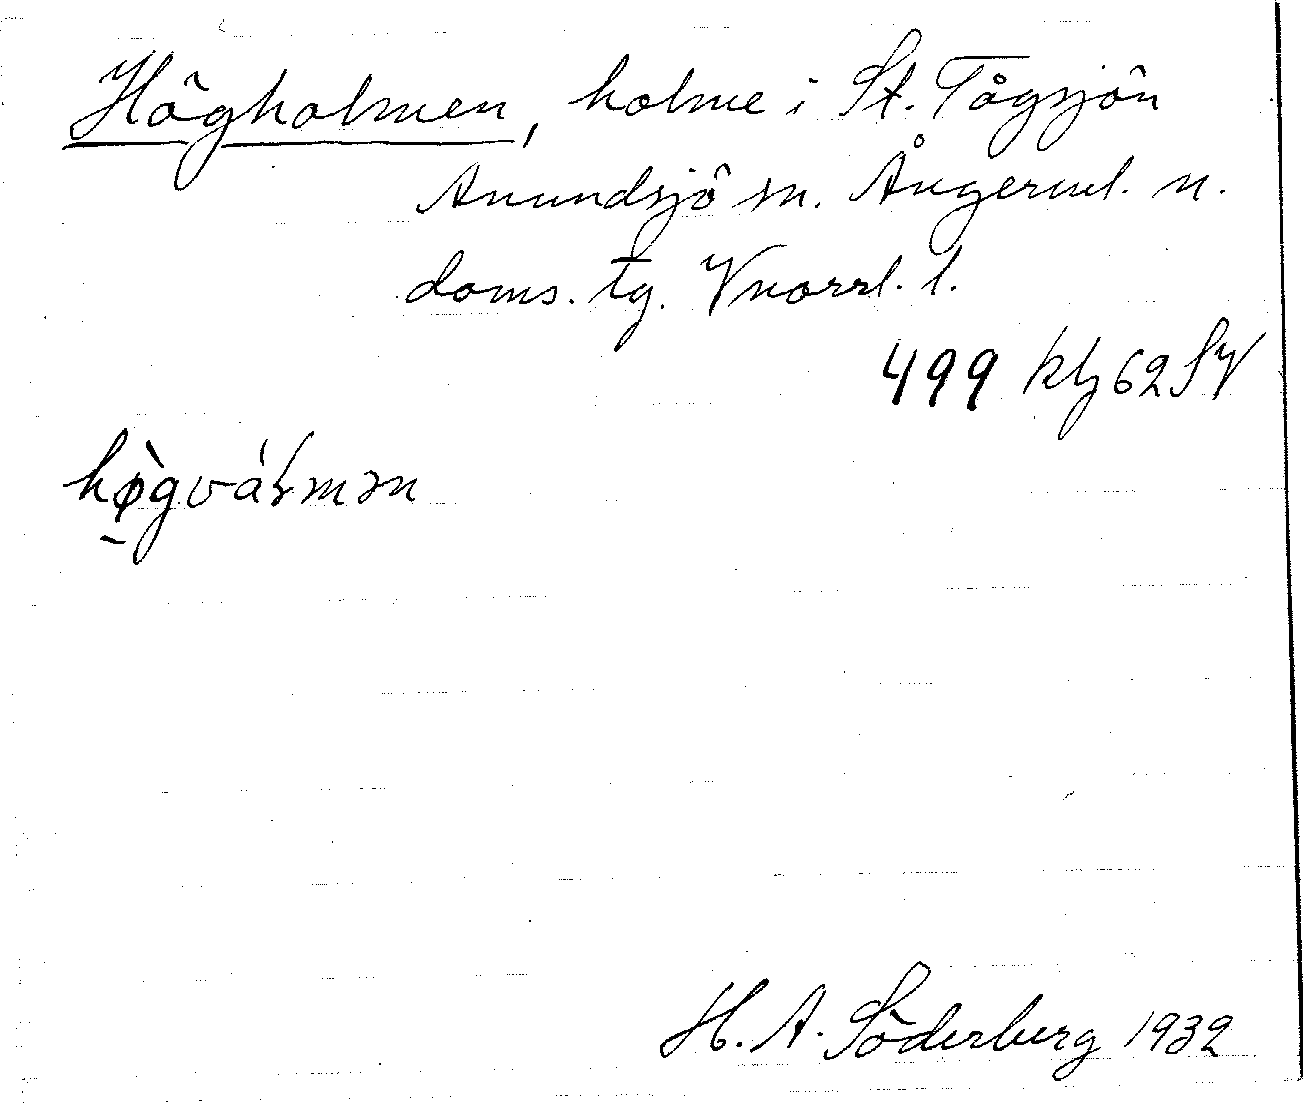 Högholmen, holme i St. Tågsjön
Anundsjö sn. Ångerml. n.
doms. tg. Vnorrl. l.
499 kbl 62 SV
hø̀gváɽmən
H. A. Söderberg 1932